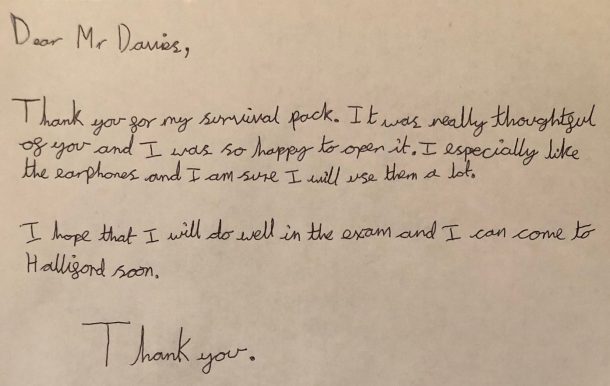 Dear Mr Davies,
Thank you for my survival pack. It was really thoughtful
of you and I was so happy to open it. I especially like
the earphones and I am sure I will use them a lot.
I hope that I will do well in the exam and I can come to
Halliford soon.
Thank you.